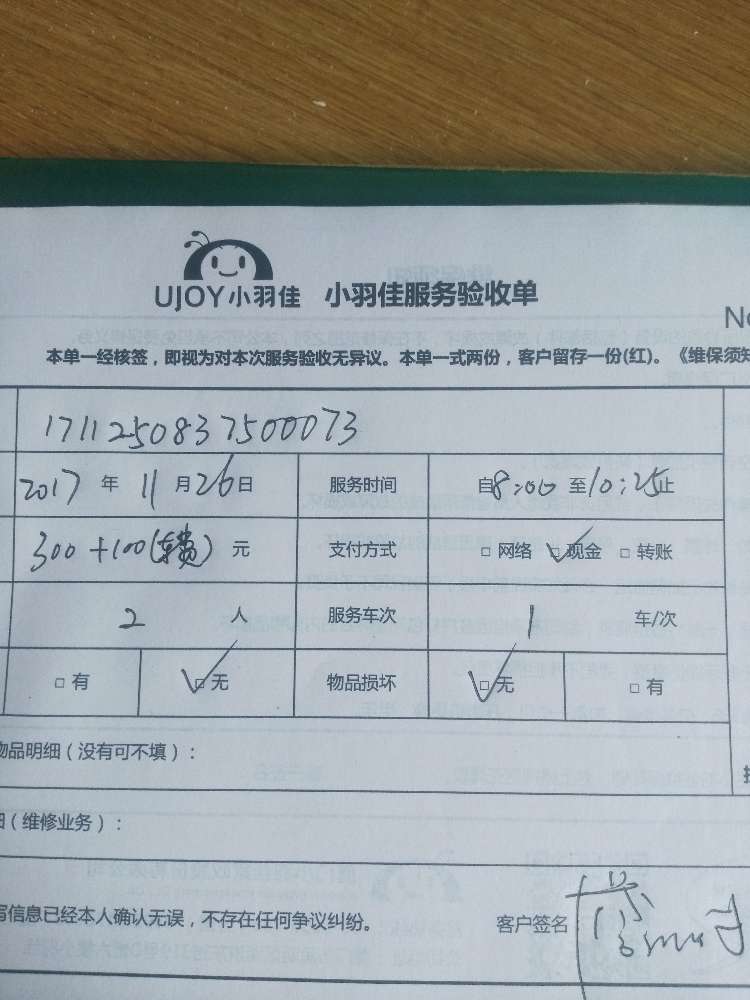 UJOY小羽佳 小羽佳服务验收单
No
本单一经核签，即视为对本次服务验收无异议。本单一式两份，客户留存一份(红)。《维保须知
1711250837500073
2017 年 11 月 26 日 服务时间 自8:00 至10:25止
300+100(楼费) 元 支付方式 □ 网络 ☑ 现金 □ 转账
2 人 服务车次 1 车/次
□ 有 ☑ 无 物品损坏 ☑ 无 □ 有
物品明细（没有可不填）：
（维修业务）：
写信息已经本人确认无误，不存在任何争议纠纷。 客户签名